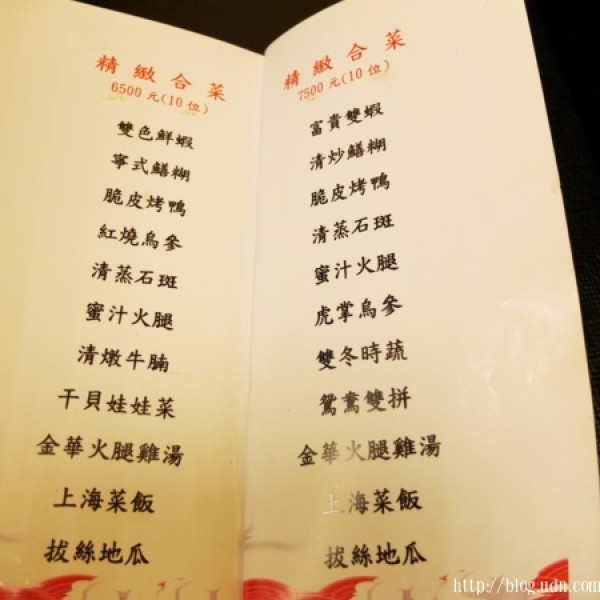 精緻合菜
6500元(10位)
雙色鮮蝦
寧式鱔糊
脆皮烤鴨
紅燒烏參
清蒸石斑
蜜汁火腿
清燉牛腩
干貝娃娃菜
金華火腿雞湯
上海菜飯
拔絲地瓜
精緻合菜
7500元(10位)
富貴雙蝦
清炒鱔糊
脆皮烤鴨
清蒸石斑
蜜汁火腿
虎掌烏參
雙冬時蔬
鴛鴦雙拼
金華火腿雞湯
上海菜飯
拔絲地瓜
http://blog.udn.com/